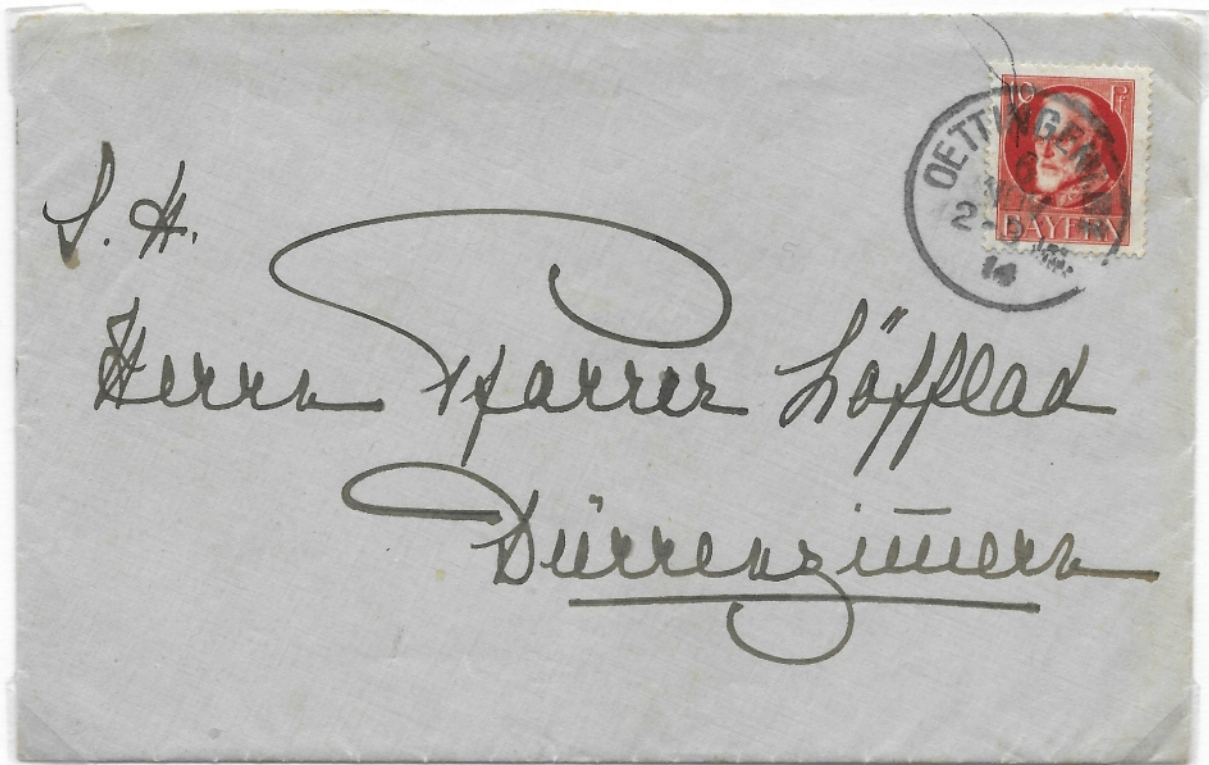 10 Pf
BAYERN
OETTINGEN
14
S. H.
Herrn Pfarrer Löfflad
Dürrenzim̅ern